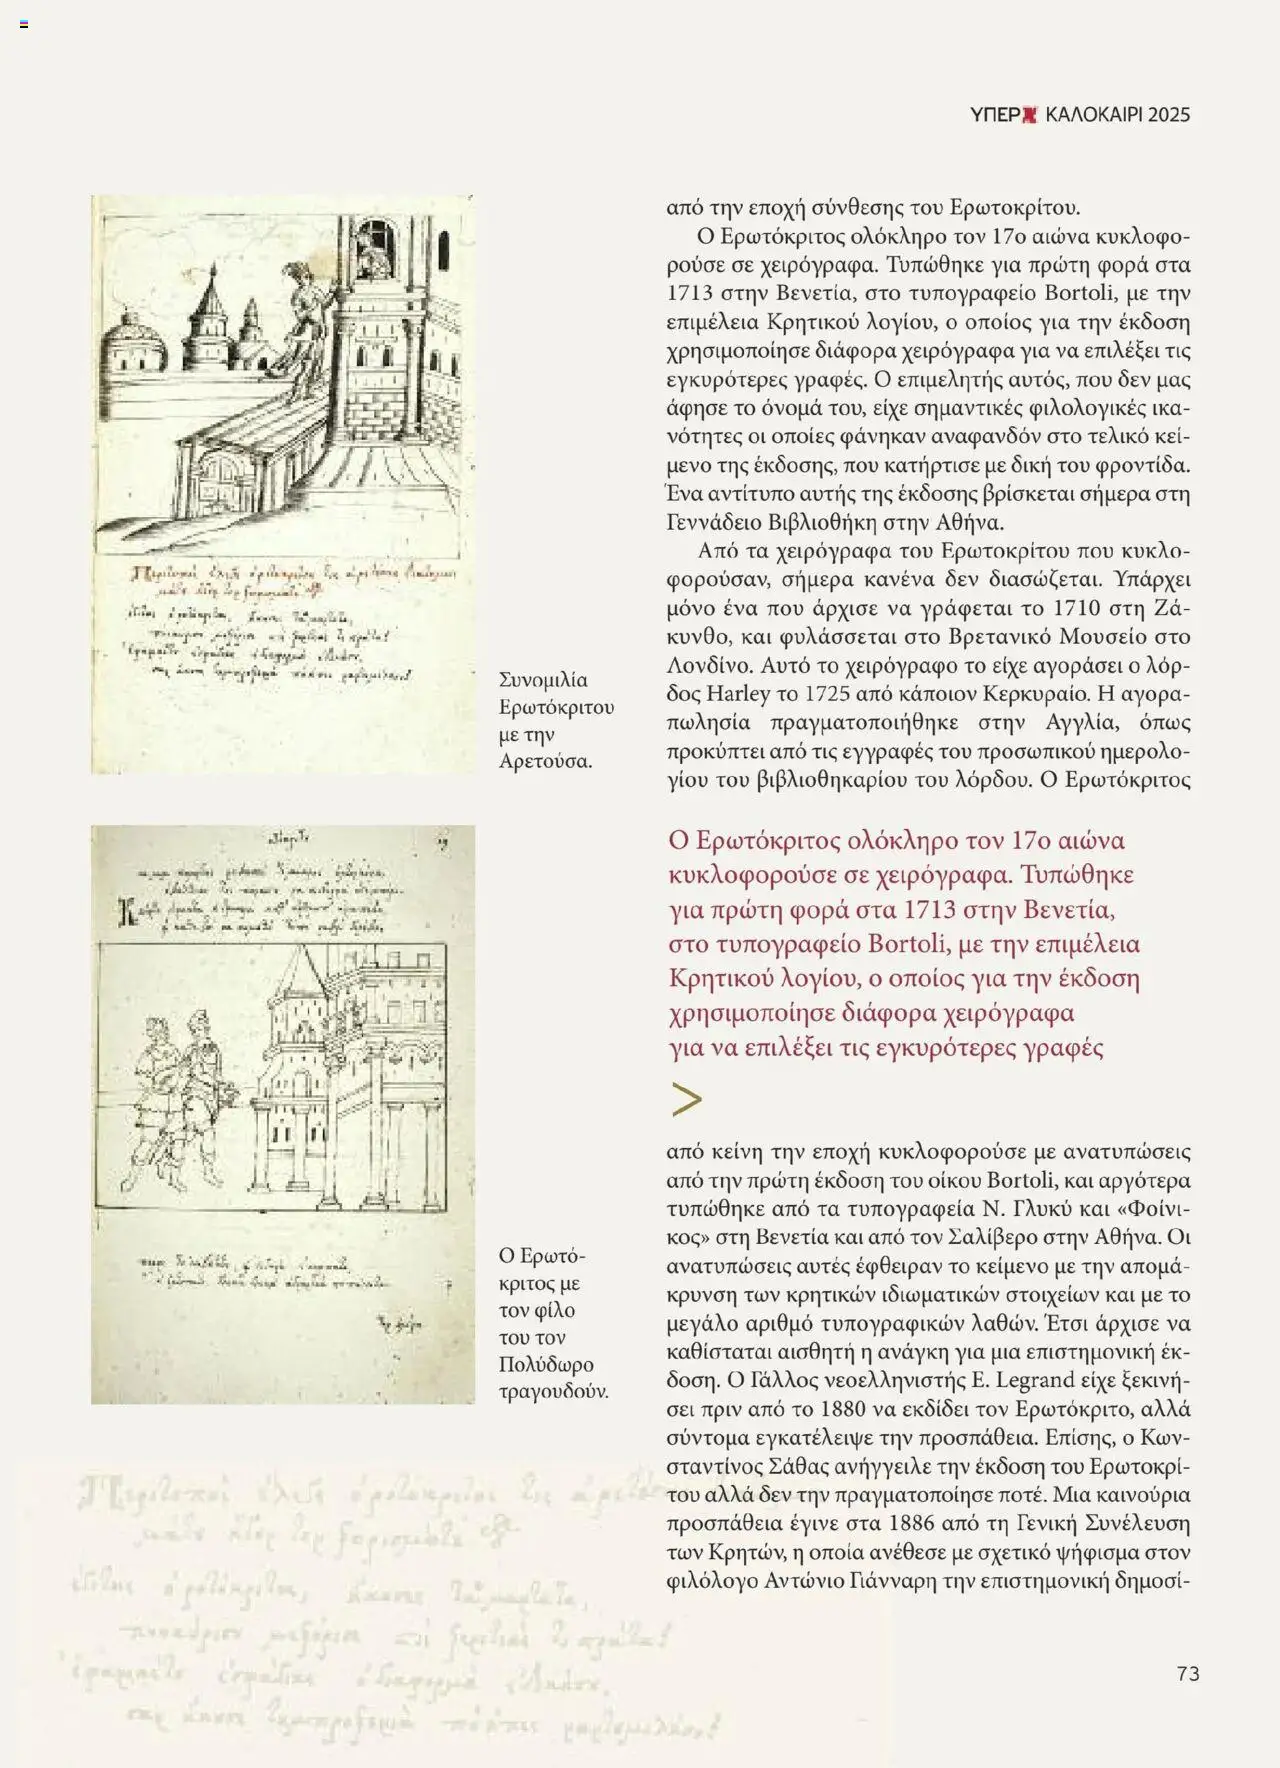 ΥΠΕΡΧ ΚΑΛΟΚΑΙΡΙ 2025
Συνομιλία
Ερωτόκριτου
με την
Αρετούσα.
Ο Ερωτό-
κριτος με
τον φίλο
του τον
Πολύδωρο
τραγουδούν.
από την εποχή σύνθεσης του Ερωτοκρίτου.
Ο Ερωτόκριτος ολόκληρο τον 17ο αιώνα κυκλοφο-
ρούσε σε χειρόγραφα. Τυπώθηκε για πρώτη φορά στα
1713 στην Βενετία, στο τυπογραφείο Bortoli, με την
επιμέλεια Κρητικού λογίου, ο οποίος για την έκδοση
χρησιμοποίησε διάφορα χειρόγραφα για να επιλέξει τις
εγκυρότερες γραφές. Ο επιμελητής αυτός, που δεν μας
άφησε το όνομά του, είχε σημαντικές φιλολογικές ικα-
νότητες οι οποίες φάνηκαν αναφανδόν στο τελικό κεί-
μενο της έκδοσης, που κατήρτισε με δική του φροντίδα.
Ένα αντίτυπο αυτής της έκδοσης βρίσκεται σήμερα στη
Γεννάδειο Βιβλιοθήκη στην Αθήνα.
Από τα χειρόγραφα του Ερωτοκρίτου που κυκλο-
φορούσαν, σήμερα κανένα δεν διασώζεται. Υπάρχει
μόνο ένα που άρχισε να γράφεται το 1710 στη Ζά-
κυνθο, και φυλάσσεται στο Βρετανικό Μουσείο στο
Λονδίνο. Αυτό το χειρόγραφο το είχε αγοράσει ο λόρ-
δος Harley το 1725 από κάποιον Κερκυραίο. Η αγορα-
πωλησία πραγματοποιήθηκε στην Αγγλία, όπως
προκύπτει από τις εγγραφές του προσωπικού ημερολο-
γίου του βιβλιοθηκαρίου του λόρδου. Ο Ερωτόκριτος
Ο Ερωτόκριτος ολόκληρο τον 17ο αιώνα
κυκλοφορούσε σε χειρόγραφα. Τυπώθηκε
για πρώτη φορά στα 1713 στην Βενετία,
στο τυπογραφείο Bortoli, με την επιμέλεια
Κρητικού λογίου, ο οποίος για την έκδοση
χρησιμοποίησε διάφορα χειρόγραφα
για να επιλέξει τις εγκυρότερες γραφές
>
από κείνη την εποχή κυκλοφορούσε με ανατυπώσεις
από την πρώτη έκδοση του οίκου Bortoli, και αργότερα
τυπώθηκε από τα τυπογραφεία Ν. Γλυκύ και «Φοίνι-
κος» στη Βενετία και από τον Σαλίβερο στην Αθήνα. Οι
ανατυπώσεις αυτές έφθειραν το κείμενο με την απομά-
κρυνση των κρητικών ιδιωματικών στοιχείων και με το
μεγάλο αριθμό τυπογραφικών λαθών. Έτσι άρχισε να
καθίσταται αισθητή η ανάγκη για μια επιστημονική έκ-
δοση. Ο Γάλλος νεοελληνιστής E. Legrand είχε ξεκινή-
σει πριν από το 1880 να εκδίδει τον Ερωτόκριτο, αλλά
σύντομα εγκατέλειψε την προσπάθεια. Επίσης, ο Κων-
σταντίνος Σάθας ανήγγειλε την έκδοση του Ερωτοκρί-
του αλλά δεν την πραγματοποίησε ποτέ. Μια καινούρια
προσπάθεια έγινε στα 1886 από τη Γενική Συνέλευση
των Κρητών, η οποία ανέθεσε με σχετικό ψήφισμα στον
φιλόλογο Αντώνιο Γιάνναρη την επιστημονική δημοσί-
73